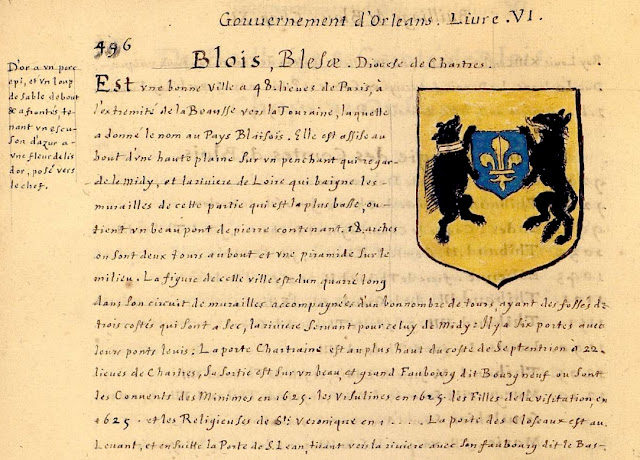 Gouuernement d'Orleans. Liure. VI.
496
Blois, Blesæ. Diocese de Chartres.
D'or a vn porc
epi, et vn loup
de sable debout
& afrontés, te-
nant vn escu-
son d'azur a-
vne fleur de lis
d'or, posé vers
le chef.
Est vne bonne ville a 48. lieues de Paris, à
l'extremité de la Beausse vers la Touraine, laquelle
a donné le nom au Pays Blaisois. Elle est assise au
bout d'vne haute plaine sur vn penchant qui regar-
de le midy, et la riuiere de Loire qui baigne les
murailles de cette partie qui est la plus basse, ou
tient vn beau pont de pierre contenant. 18. arches
ou sont deux tours au bout et vne piramide sur le
milieu. La figure de celle ville est d'un quarré long
dans son circuit de murailles accompagnées d'un bon nombre de tours, ayant des fossés de
trois costés qui sont a sec, la riuiere seruant pour celuy de midy: Il y a six portes auec
leurs ponts leuis: La porte Chartraine est au plus haut du costé de Septentrion a 22.
lieues de Chartres, sa sortie est sur vn beau et grand Faubourg dit Bourgneuf ou sont
des Conuents des Minimes en 1625. les Vrsulines en 1625. des Filles de la visitation en
1625. et les Religieuses de Ste Veronique en 1 La porte des Closeaux est au
Leuant, et ensuitte la Porte de S. Iean, tirant vers la riuiere auec son faubourg dit le Bas-